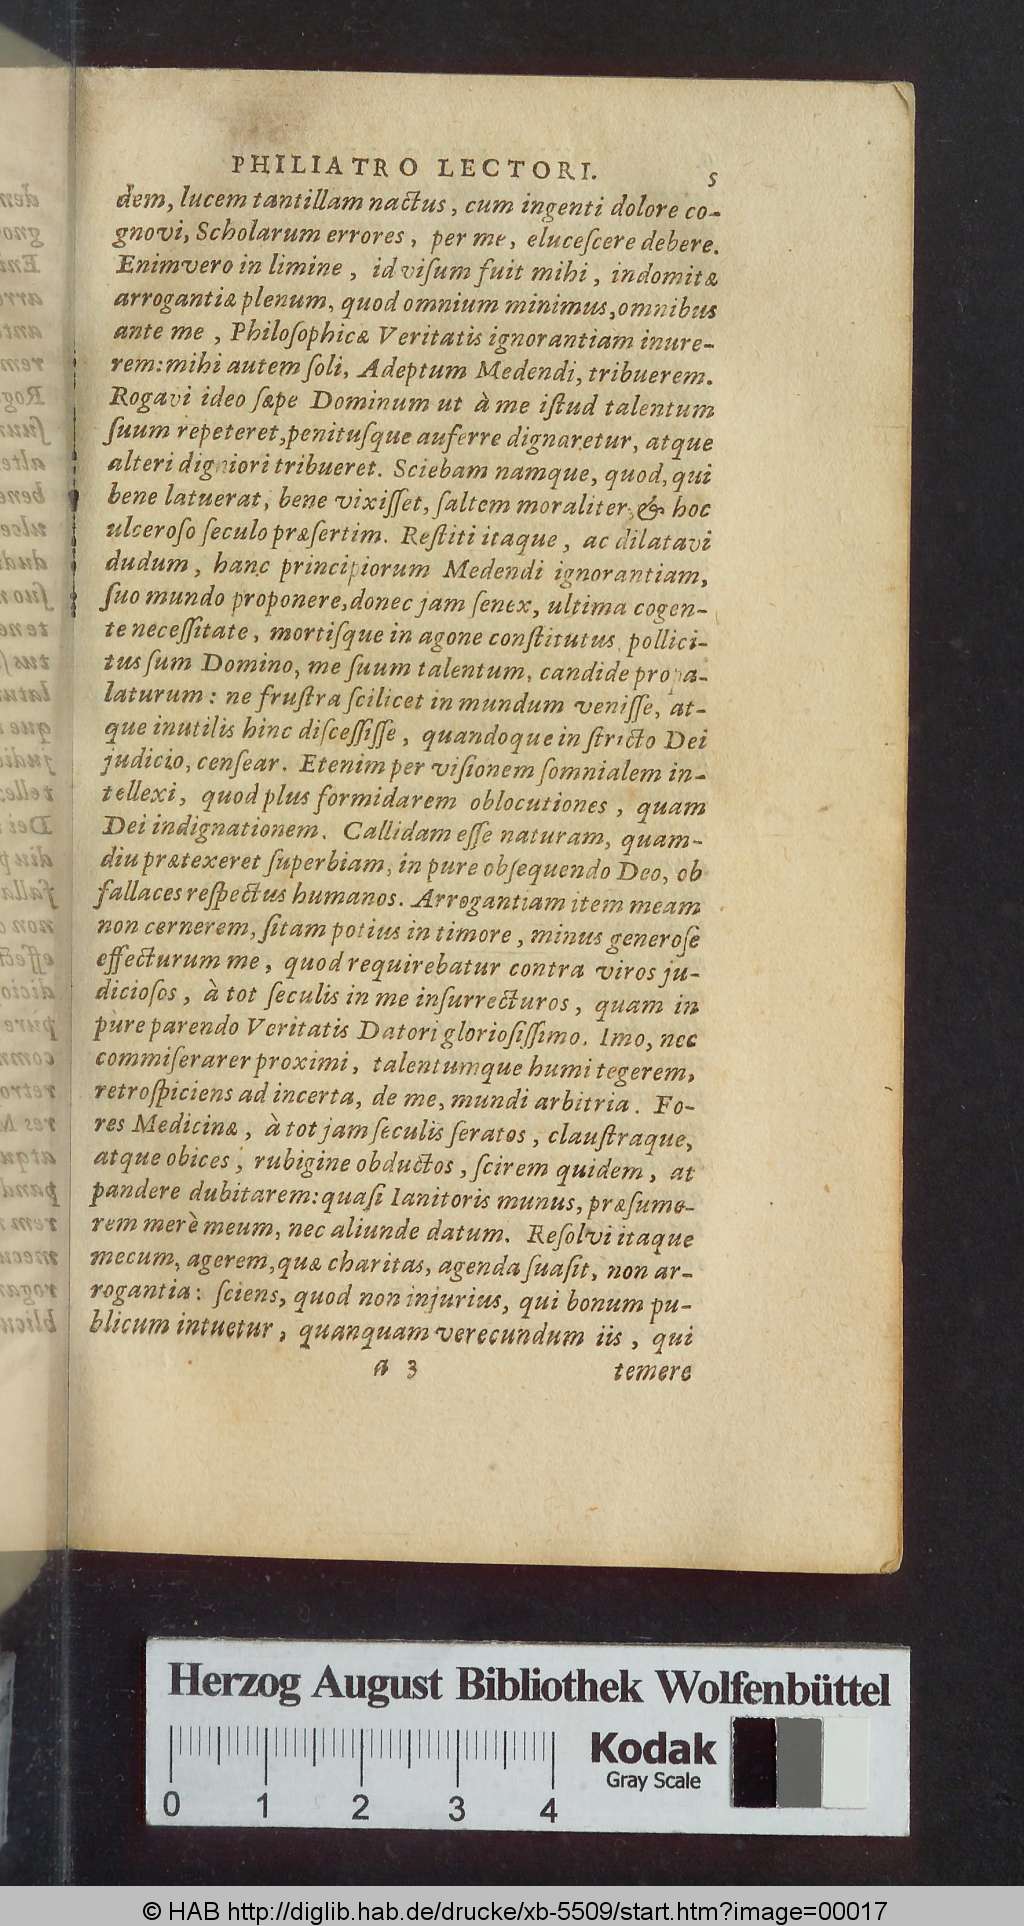 PHILIATRO LECTORI. 5
dem, lucem tantillam nactus, cum ingenti dolore co-
gnovi, Scholarum errores, per me, eluceſcere debere.
Enimvero in limine, id viſum fuit mihi, indomitæ
arrogantiæ plenum, quod omnium minimus, omnibus
ante me, Philoſophicæ Veritatis ignorantiam inure-
rem: mihi autem ſoli, Adeptum Medendi, tribuerem.
Rogavi ideo ſæpe Dominum ut à me iſtud talentum
ſuum repeteret, penituſque auferre dignaretur, atque
alteri digniori tribueret. Sciebam namque, quod, qui
bene latuerat, bene vixiſſet, ſaltem moraliter, & hoc
ulceroſo ſeculo præſertim. Reſtiti itaque, ac dilatavi
dudum, hanc principiorum Medendi ignorantiam,
ſuo mundo proponere, donec jam ſenex, ultima cogen-
te neceſſitate, mortiſque in agone conſtitutus pollici-
tus ſum Domino, me ſuum talentum, candide propa-
laturum: ne fruſtra ſcilicet in mundum veniſſe, at-
que inutilis hinc diſceſſiſſe, quandoque in ſtricto Dei
judicio, cenſear. Etenim per viſionem ſomnialem in-
tellexi, quod plus formidarem oblocutiones, quam
Dei indignationem. Callidam eſſe naturam, quam-
diu prætexeret ſuperbiam, in pure obſequendo Deo, ob
fallaces reſpectus humanos. Arrogantiam item meam
non cernerem, ſitam potius in timore, minus generoſe
effecturum me, quod requirebatur contra viros ju-
dicioſos, à tot ſeculis in me inſurrecturos, quam in
pùre parendo Veritatis Datori glorioſiſſimo. Imo, nec
commiſerarer proximi, talentumque humi tegerem,
retroſpiciens ad incerta, de me, mundi arbitria. Fo-
res Medicinæ, à tot jam ſeculis ſeratos, clauſtraque,
atque obices, rubigine obductos, ſcirem quidem, at
pandere dubitarem: quaſi Ianitoris munus, præſume-
rem merè meum, nec aliunde datum. Reſolvi itaque
mecum, agerem, quæ charitas, agenda ſuaſit, non ar-
rogantia: ſciens, quod non injurius, qui bonum pu-
blicum intuetur, quanquam verecundum iis, qui
a 3 temere
Herzog August Bibliothek Wolfenbüttel
Kodak
Gray Scale
0 1 2 3 4
© HAB http://diglib.hab.de/drucke/xb-5509/start.htm?image=00017